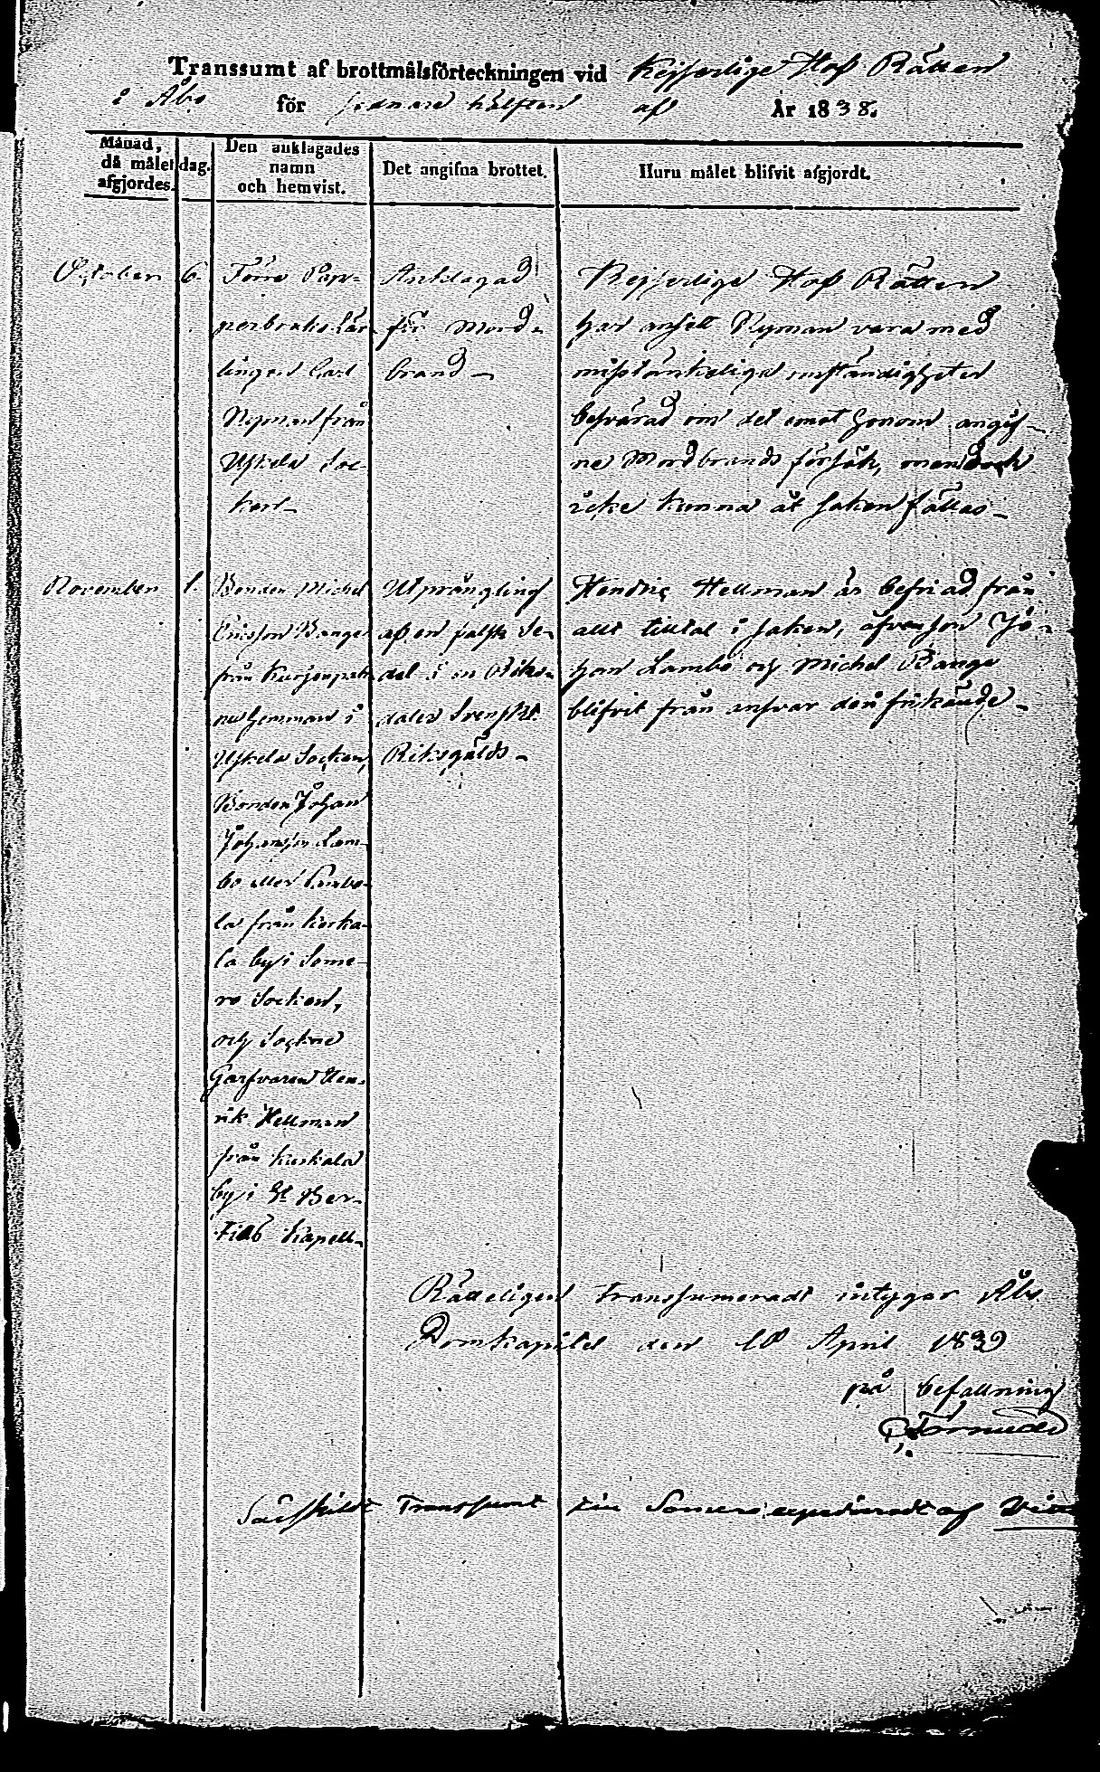 Transsumt af brottmålsförteckningen vid Kejserlige Hof Rätten
i Åbo för sednare hälften af År 1838.
Månad, då målet afgjordes.
dag.
Den anklagades namn och hemvist.
Det angifna brottet.
Huru målet blifvit afgjordt.
October
6.
Förre Pap-
persbruks Lär-
lingen Carl
Nyman från
Uskela Soc-
ken -
Anklagad
för Mord-
brand -
Kejserlige Hof Rätten
har ansett Nyman vara med
misstänkeliga omständigheter
besvärad om det emot honom angif-
ne Mordbrands försök, men dock
icke kunna åt saken fällas -
November
1.
Bonden Michel
Ericsson Bange
från
hemman i
Uskela Socken,
Bonden Johan
Johansson Lam-
bo eller Lambo-
la från Kerka-
la by i Some-
ro Socken,
och Sockne
Garfvaren Hen-
rik Hellman
från Kaskala
by i St Ber-
tils Kapell -
Utprångling
af en falsk Se-
del å en Riks-
daler Svenskt
Riksgälds -
Hendric Hellman är befriad från
allt tilltal i saken, äfvensom Jo-
han Lambo och Michel Bange
blifvit från ansvar dön frikände -
Rätteligen transsumeradt intygar Åbo
Domkapitel den 10 April 1839
på befallning
Särskildt Transsumt till Somero expedieradt af